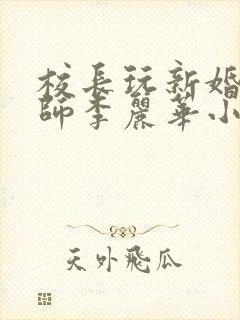 校長玩新婚
師李麗華小
天外飛瓜